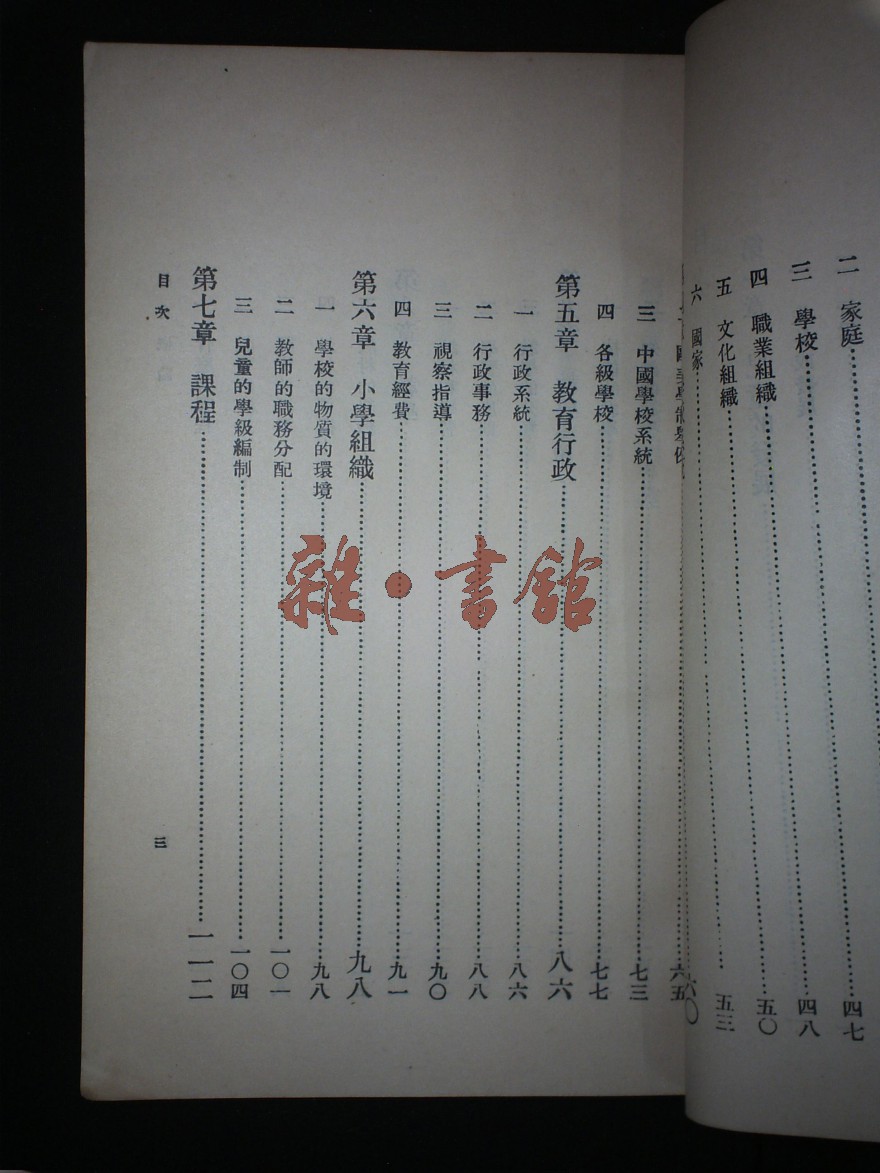 二　家庭……四七
三　學校……四八
四　職業組織……五〇
五　文化組織……五三
六　國家……六〇
六五
三　中國學校系統……七三
四　各級學校……七七
第五章　教育行政……八六
一　行政系統……八六
二　行政事務……八八
三　視察指導……九〇
四　教育經費……九一
第六章　小學組織……九八
一　學校的物質的環境……九八
二　教師的職務分配……一〇一
三　兒童的學級編制……一〇四
第七章　課程……一一二
目次
三
雜·書館